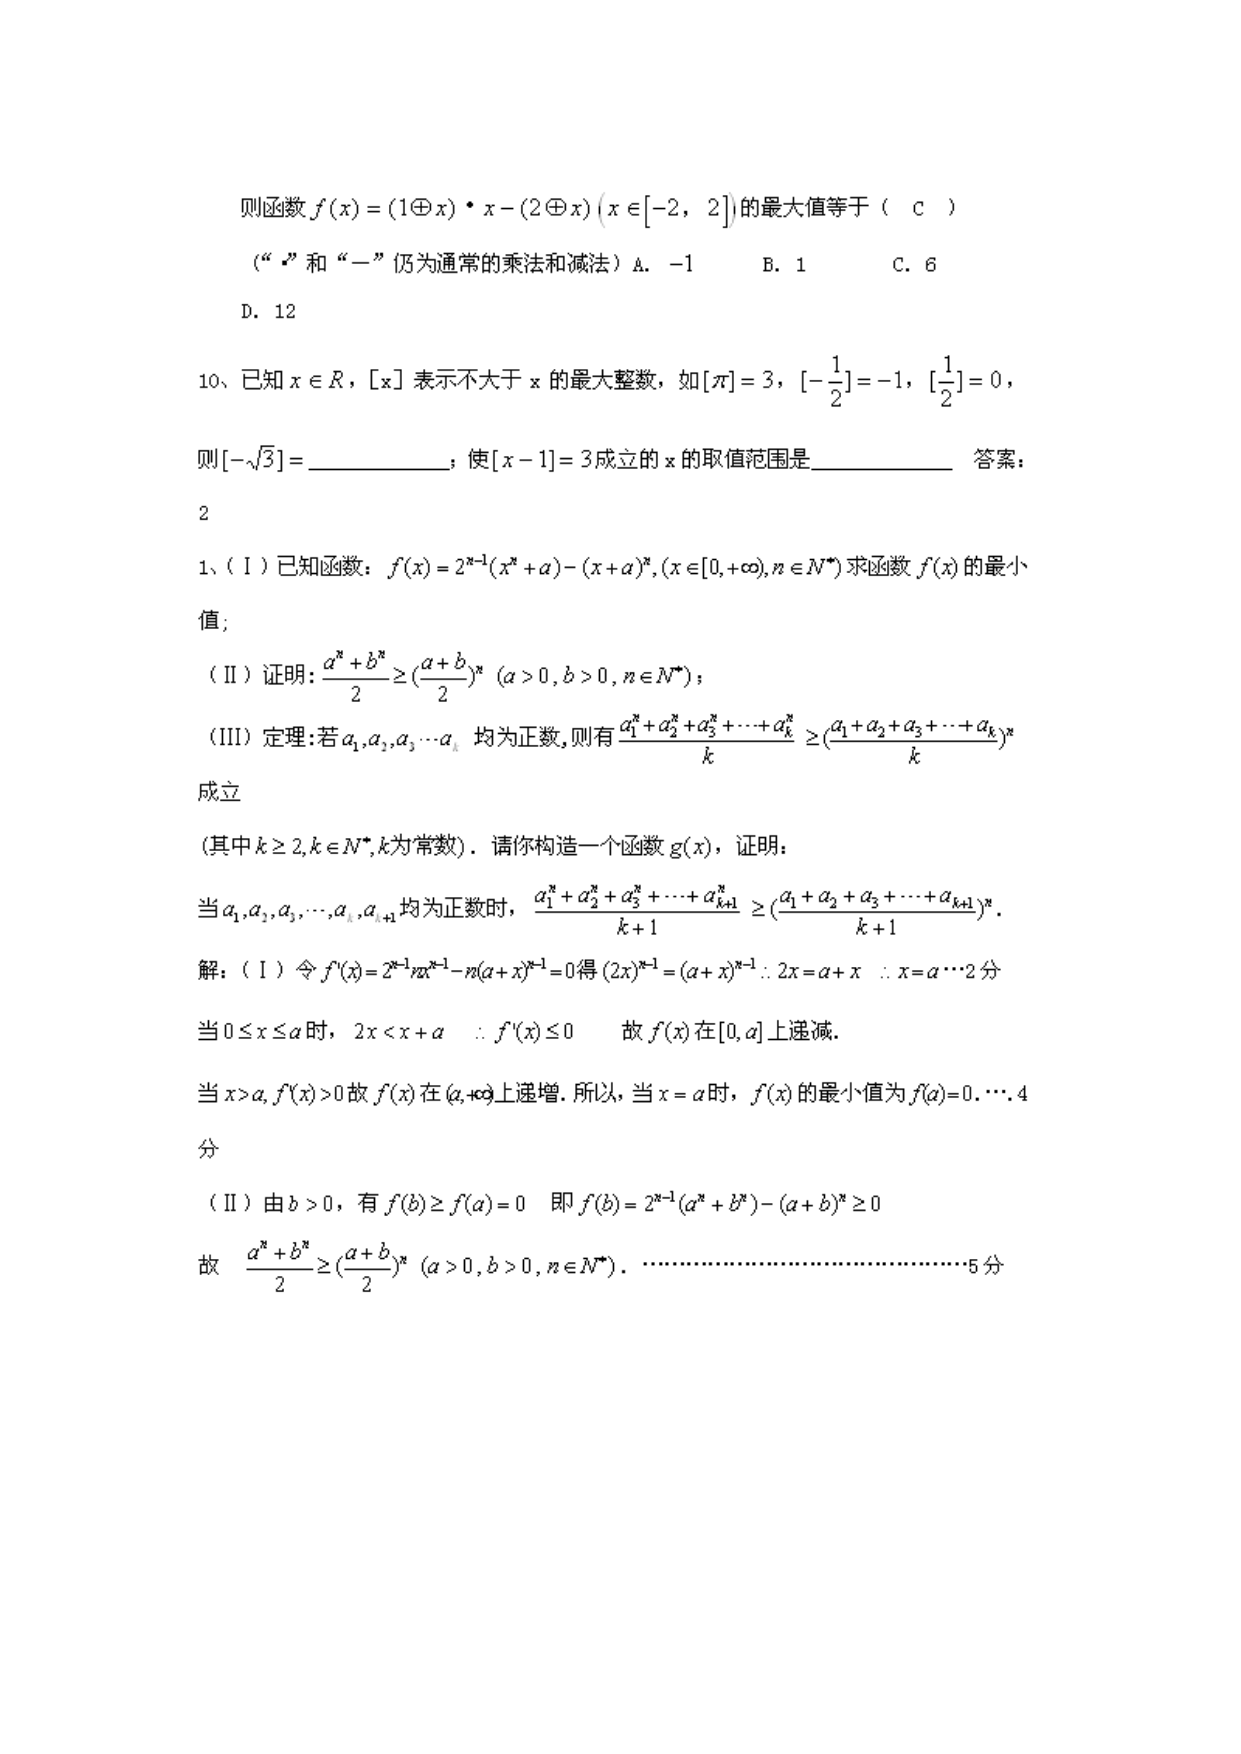 则函数 f(x)=(1⊕x)•x−(2⊕x)(x∈[−2, 2])的最大值等于（ C ）
（“·”和“—”仍为通常的乘法和减法）A. −1 B. 1 C. 6
D. 12
10、已知 x∈R,［x］表示不大于 x 的最大整数, 如[π]=3, [−1/2]=−1, [1/2]=0,
则[−√3]=____________; 使[x−1]=3成立的 x 的取值范围是____________ 答案:
2
1、(Ⅰ)已知函数: f(x)=2^{n−1}(x^n+a)−(x+a)^n,(x∈[0,+∞),n∈N*)求函数 f(x)的最小
值;
(Ⅱ)证明: (a^n+b^n)/2≥((a+b)/2)^n (a>0,b>0,n∈N*);
(III)定理:若a₁,a₂,a₃⋯a_k 均为正数,则有(a₁^n+a₂^n+a₃^n+⋯+a_k^n)/k ≥((a₁+a₂+a₃+⋯+a_k)/k)^n
成立
(其中k≥2,k∈N*,k为常数). 请你构造一个函数 g(x), 证明:
当a₁,a₂,a₃,⋯,a_k,a_{k+1}均为正数时, (a₁^n+a₂^n+a₃^n+⋯+a_{k+1}^n)/(k+1) ≥((a₁+a₂+a₃+⋯+a_{k+1})/(k+1))^n.
解:(Ⅰ)令 f'(x)=2^{n−1}nx^{n−1}−n(a+x)^{n−1}=0得(2x)^{n−1}=(a+x)^{n−1}∴2x=a+x ∴x=a…2分
当0≤x≤a时, 2x<x+a ∴f'(x)≤0 故 f(x)在[0,a]上递减.
当x>a,f'(x)>0故 f(x)在(a,+∞)上递增.所以,当x=a时, f(x)的最小值为f(a)=0.….4
分
(Ⅱ)由b>0, 有 f(b)≥f(a)=0 即 f(b)=2^{n−1}(a^n+b^n)−(a+b)^n≥0
故 (a^n+b^n)/2≥((a+b)/2)^n (a>0,b>0,n∈N*). ……………………………………5分